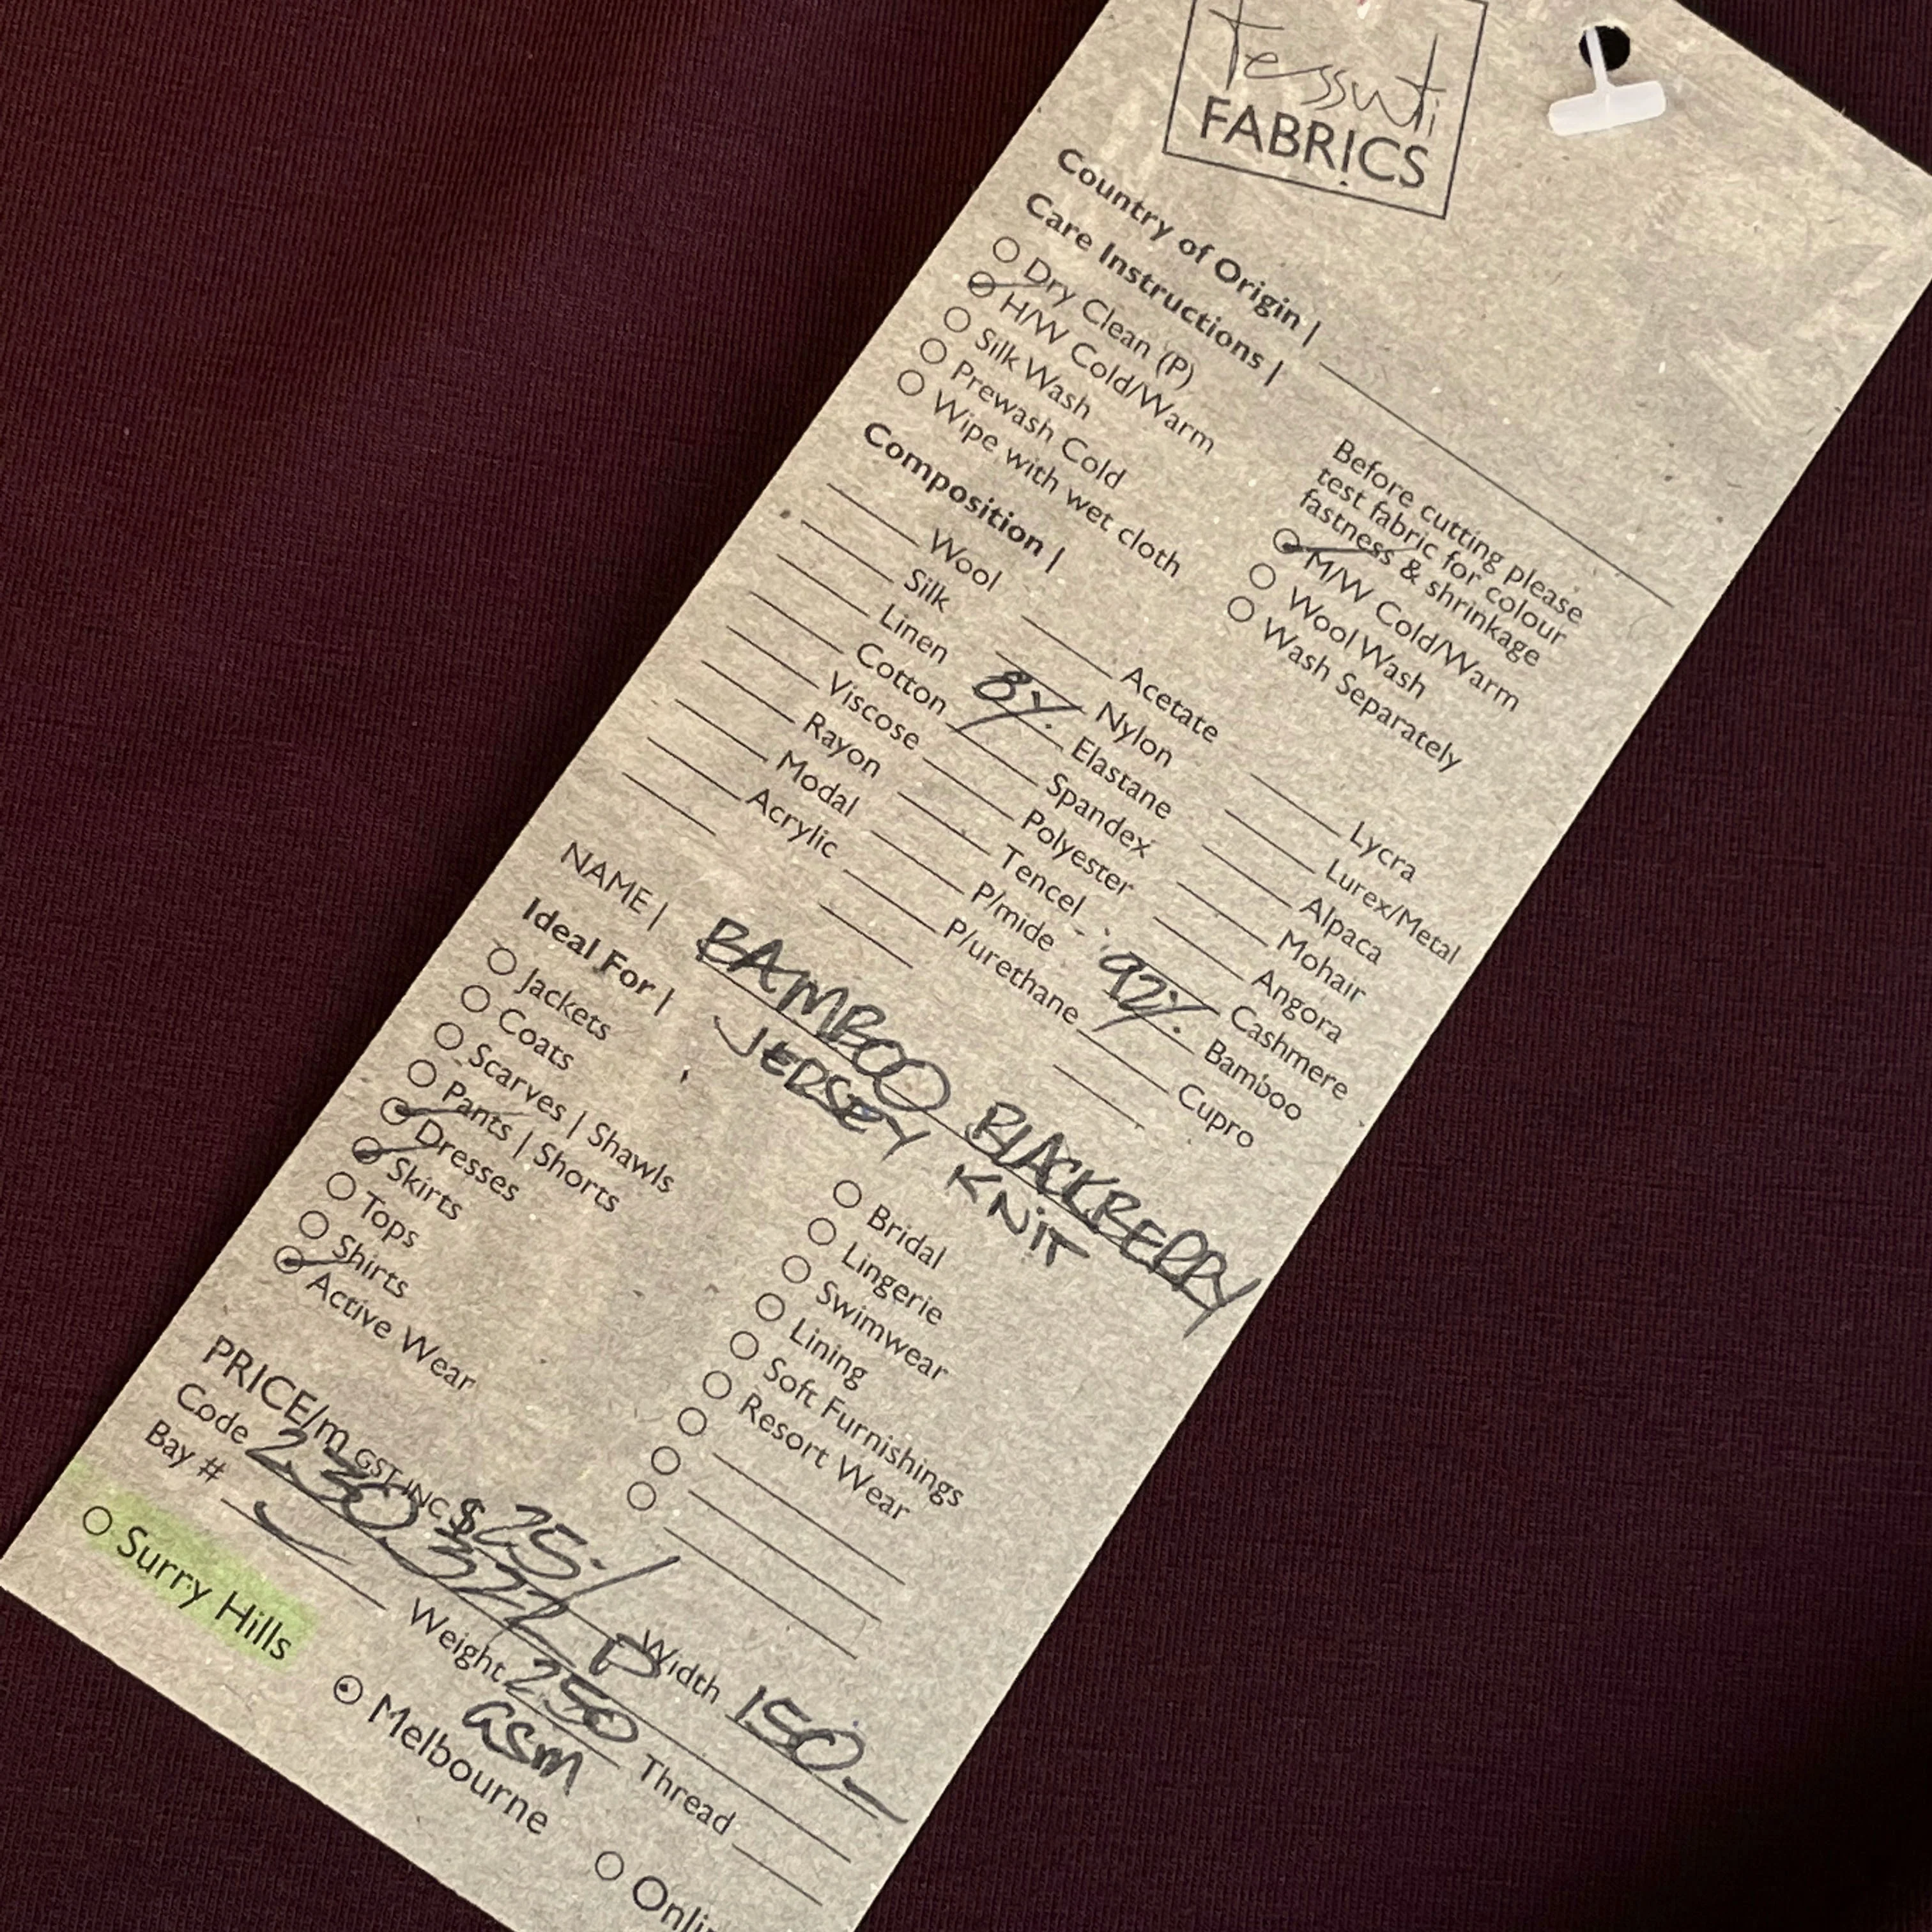 tessuti
FABRICS
Country of Origin |
Care Instructions |
Dry Clean (P)
H/W Cold/Warm
Silk Wash
Prewash Cold
Wipe with wet cloth
Before cutting please
test fabric for colour
fastness & shrinkage
M/W Cold/Warm
Wool Wash
Wash Separately
Composition |
Wool
Silk
Linen
Cotton
Viscose
Rayon
Modal
Acrylic
Acetate
Nylon
8% Elastane
Spandex
Polyester
Tencel
P/mide
P/urethane
Lycra
Lurex/Metal
Alpaca
Mohair
Angora
Cashmere
92% Bamboo
Cupro
NAME | BAMBOO BLACKBERRY
JERSEY KNIT
Ideal For |
Jackets
Coats
Scarves | Shawls
Pants | Shorts
Dresses
Skirts
Tops
Shirts
Active Wear
Bridal
Lingerie
Swimwear
Lining
Soft Furnishings
Resort Wear
PRICE/m GST INC $ 25.
Code 230
Width 150
Bay #
Weight 250
GSM
Thread
Surry Hills
Melbourne